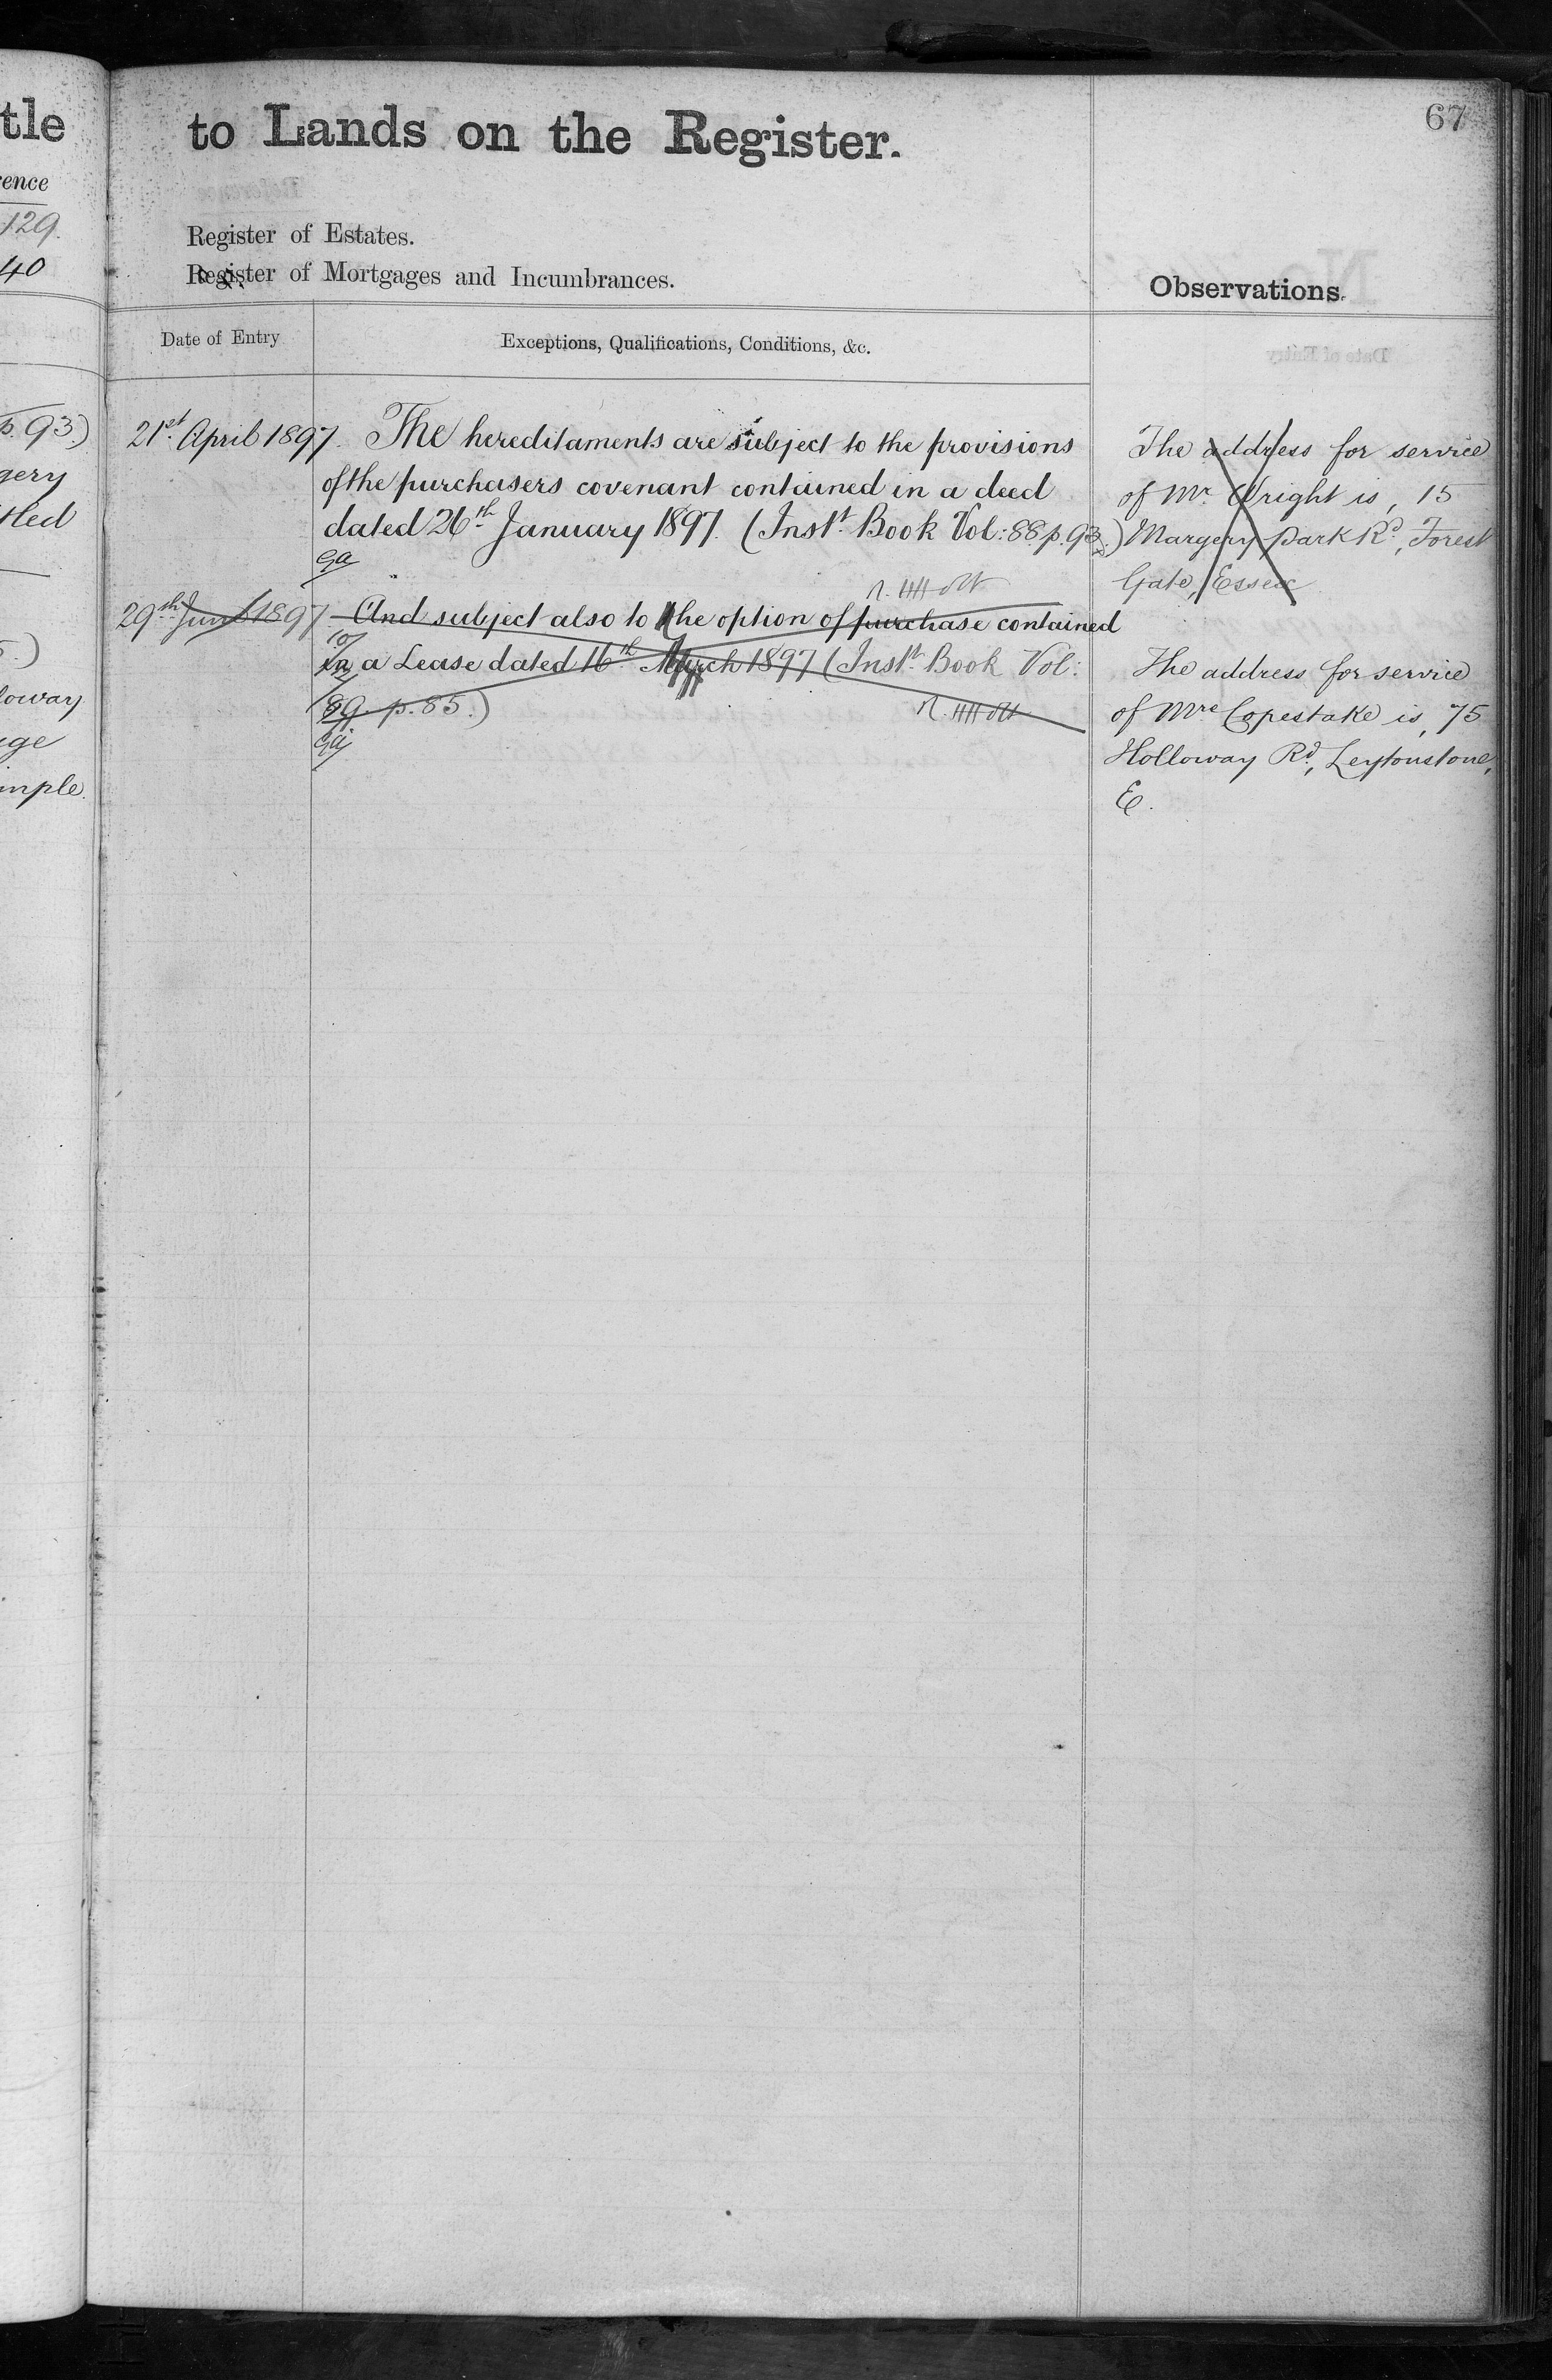 tle
to Lands on the Register.
67
129.
40
Register of Estates.
Register of Mortgages and Incumbrances.
Observations.
Date of Entry
Exceptions, Qualifications, Conditions, &c.
p. 93.)
gery
loway
21st. April 1897.
The hereditaments are subject to the provisions
of the purchasers covenant contained in a deed
dated 26th. January 1897. (Inst. Book Vol: 88. p. 93.)
29th June 1897
And subject also to the option of purchase contained
in a Lease dated 16th March 1897 (Inst. Book Vol:
89. p. 85.)
The address for service
of Mr. Wright is, 15
Margery Park Rd, Forest
Gate, Essex
The address for service
of Mrs Copestake is, 75
Holloway Rd, Leytonstone,
E.